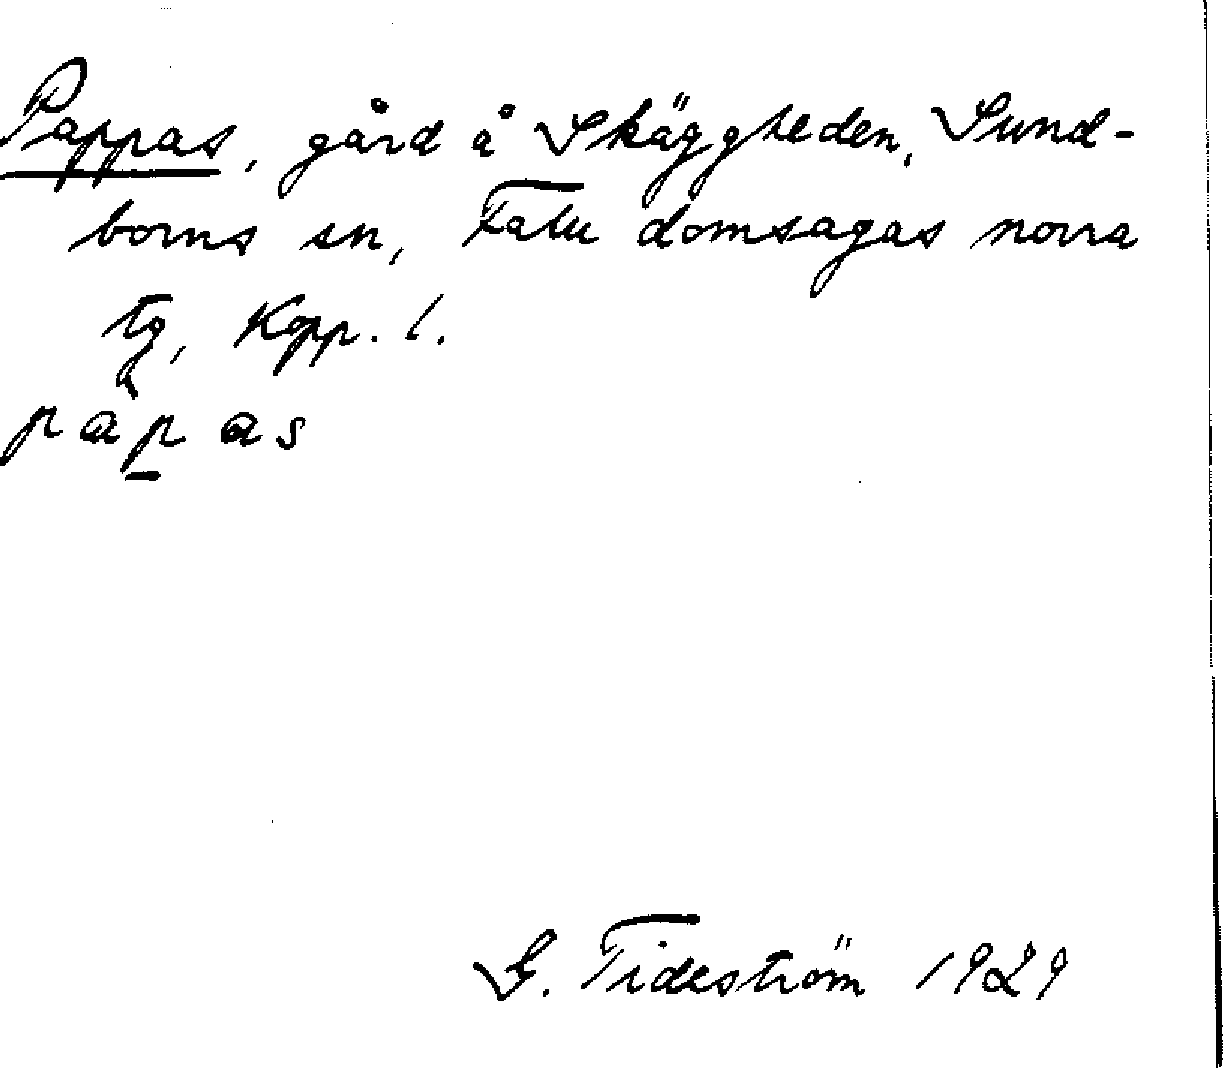 Pappas, gård å Skäggheden, Sund-
borns sn, Falu domsagas norra
tg, Kopp. l.
pàp̱as
G. Tideström 1929